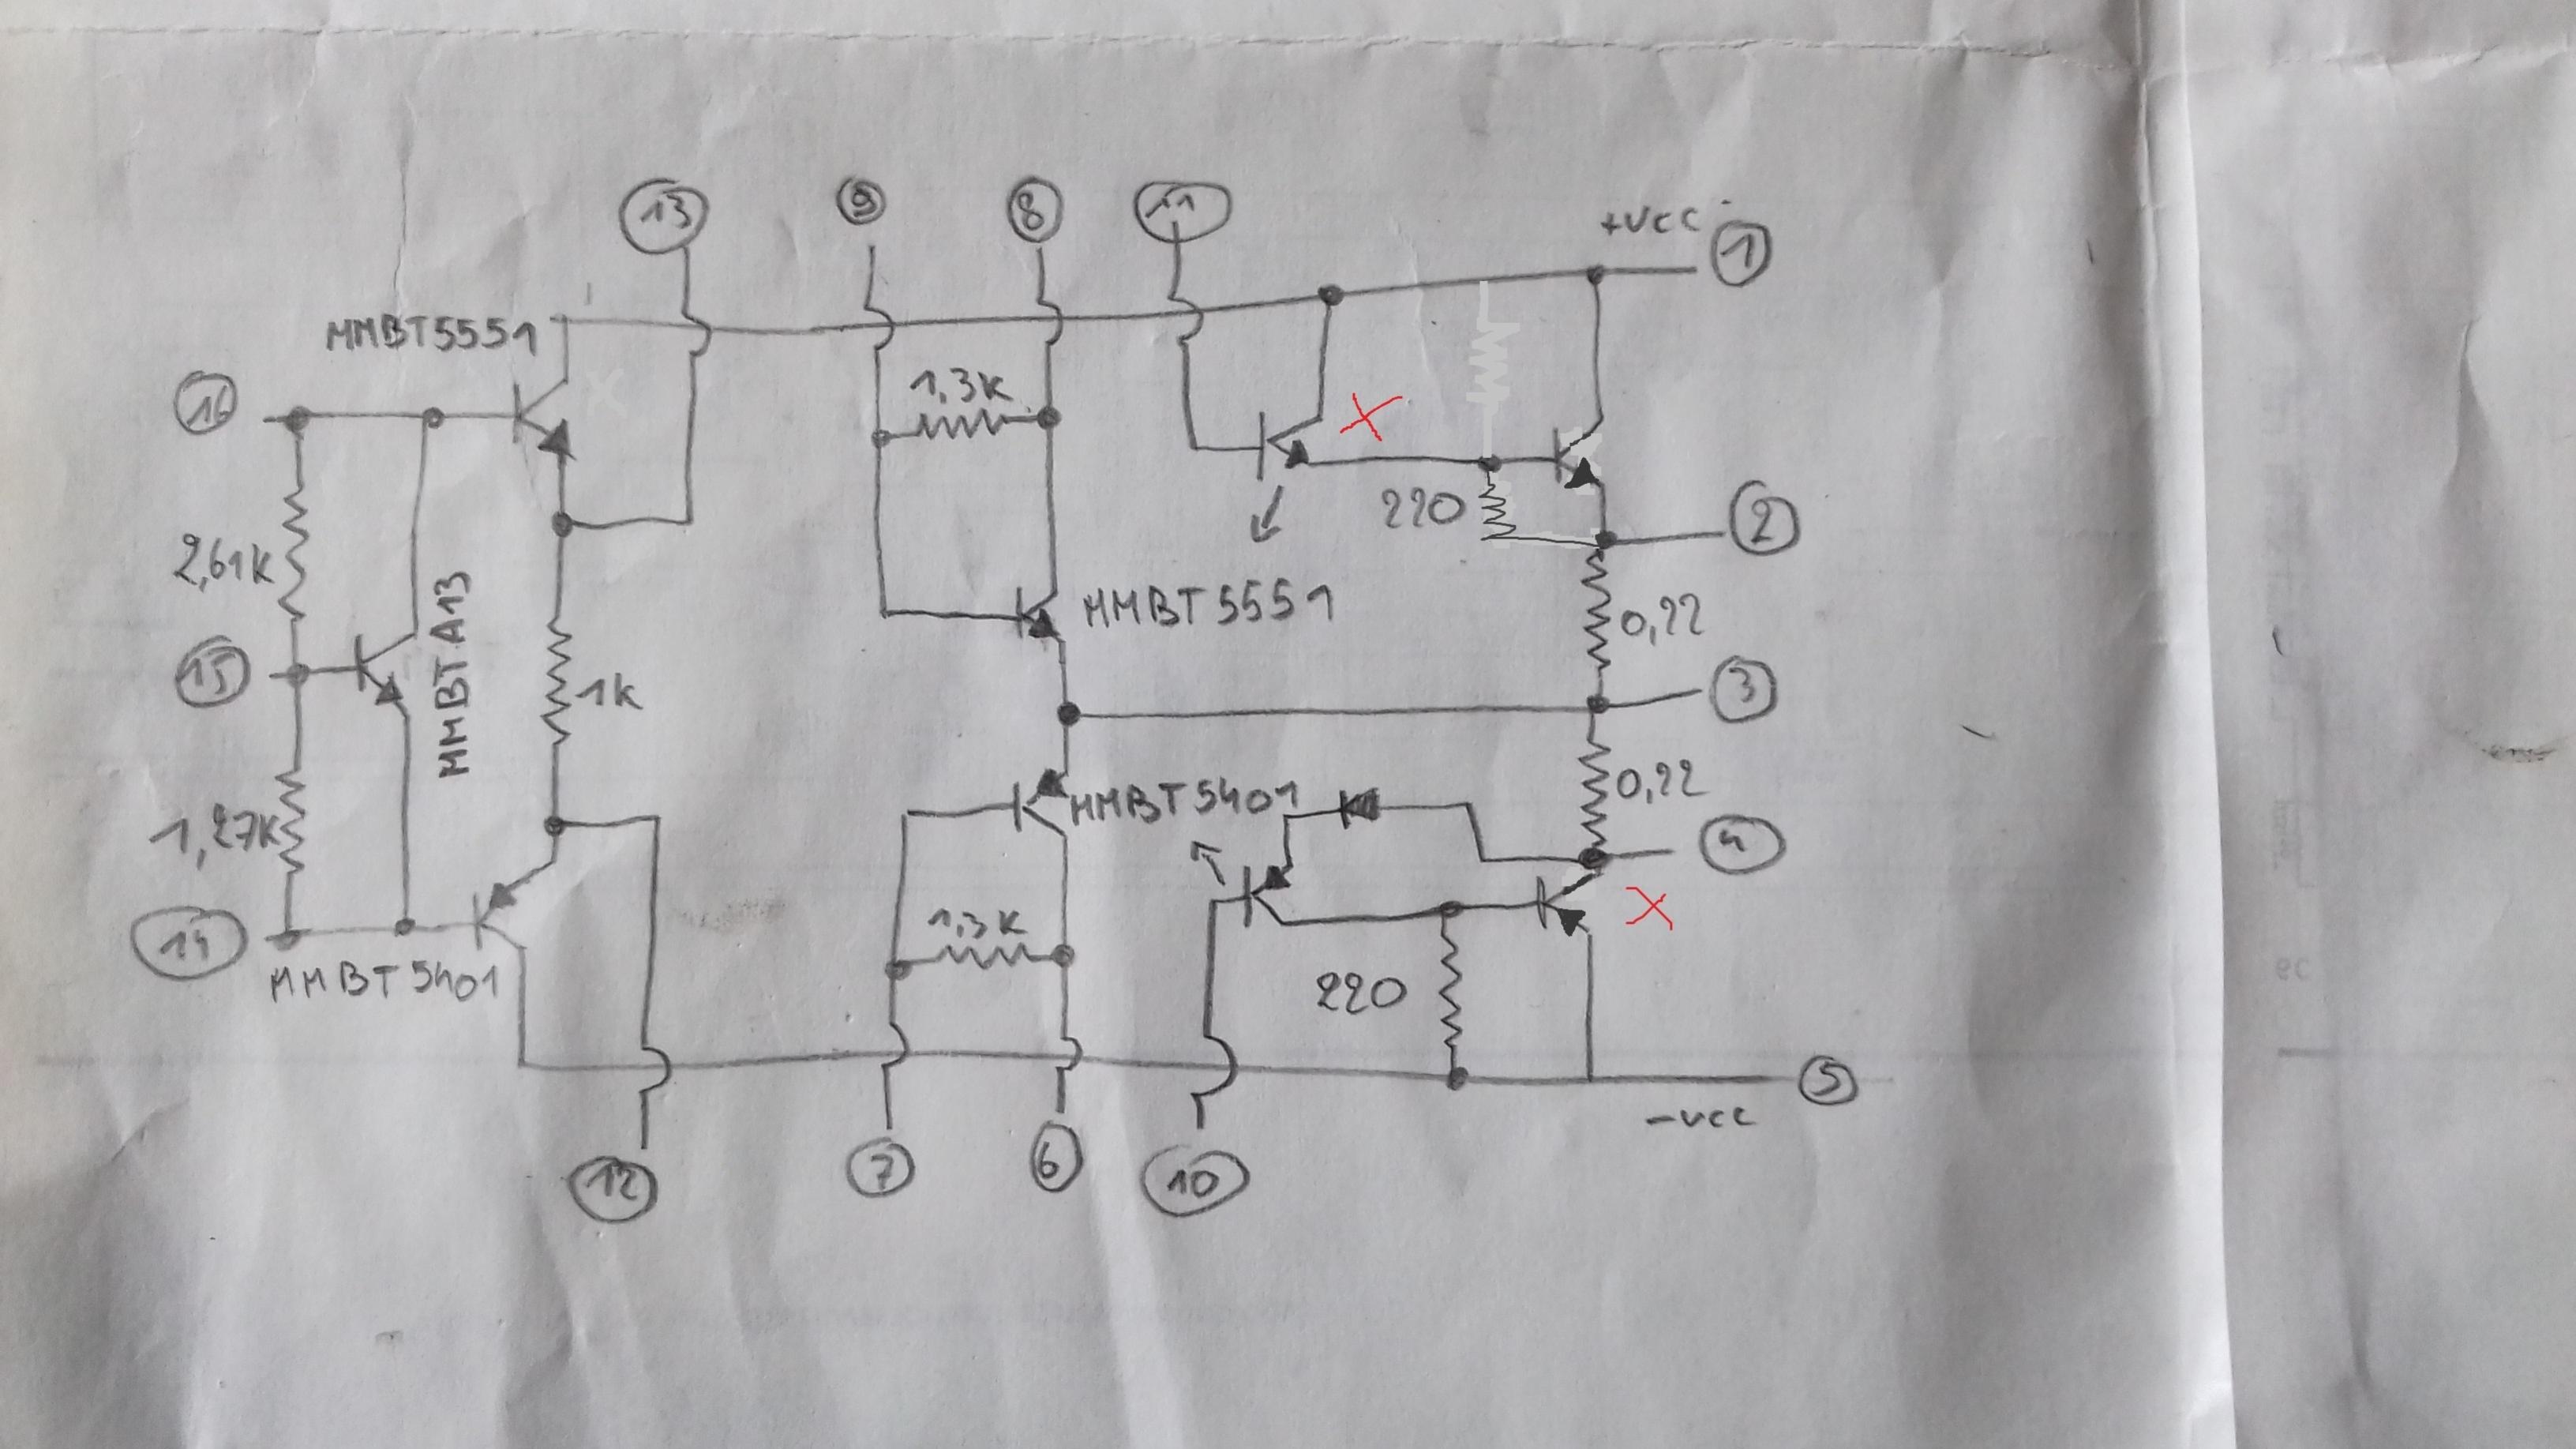 13
9
8
11
+VCC
1
MMBT5551
16
1,3K
220
2
2,61K
MMBTA13
MMBT5551
0,22
15
1K
3
MMBT5401
0,22
1,27K
4
1,3K
14
MMBT5401
220
5
-VCC
12
7
6
10